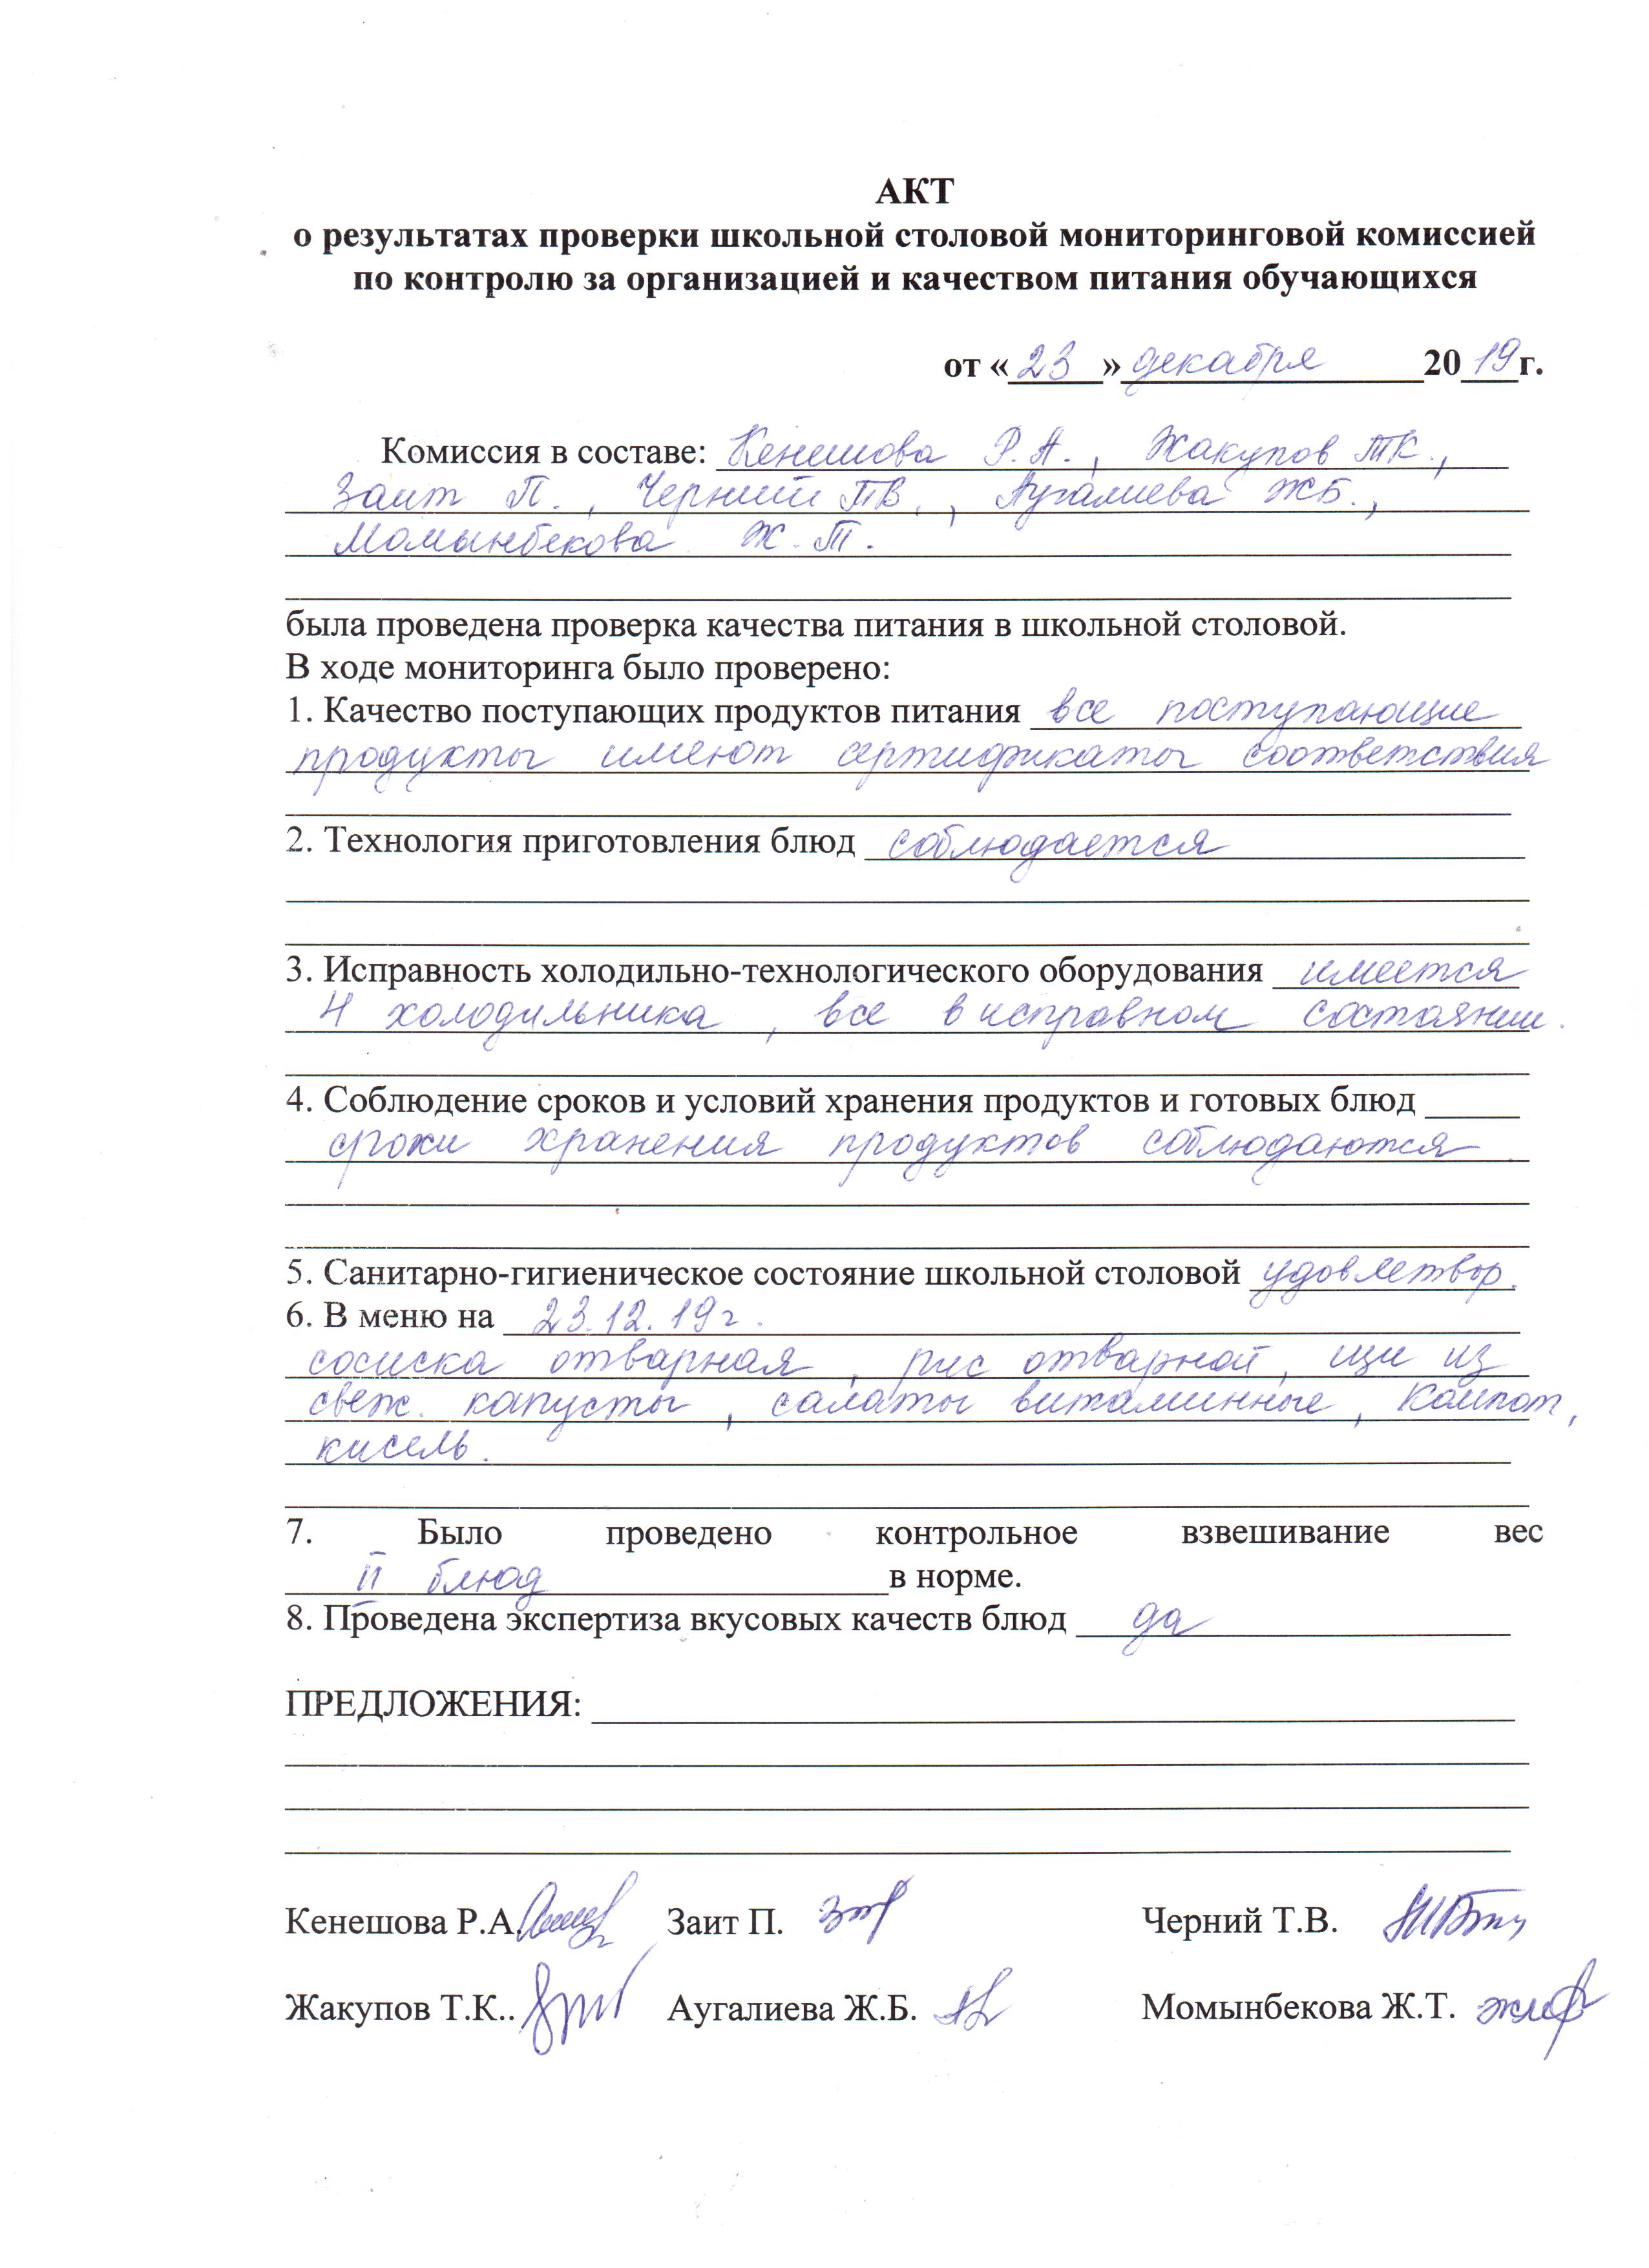 АКТ
о результатах проверки школьной столовой мониторинговой комиссией
по контролю за организацией и качеством питания обучающихся
от «23»декабря 2019г.
Комиссия в составе: Кенешова Р.А., Жакупов ТК.,
Заит П., Черний ТВ., Аугалиева ЖБ.,
Момынбекова Ж.Т.
была проведена проверка качества питания в школьной столовой.
В ходе мониторинга было проверено:
1. Качество поступающих продуктов питания все поступающие
продукты имеют сертификаты соответствия
2. Технология приготовления блюд соблюдается
3. Исправность холодильно-технологического оборудования имеется
4 холодильника, все в исправном состоянии.
4. Соблюдение сроков и условий хранения продуктов и готовых блюд
сроки хранения продуктов соблюдаются
5. Санитарно-гигиеническое состояние школьной столовой удовлетвор.
6. В меню на 23.12.19г.
сосиска отварная, рис отварной, щи из
свеж. капусты, салаты витаминные, компот,
кисель.
7. Было проведено контрольное взвешивание вес
II блюд в норме.
8. Проведена экспертиза вкусовых качеств блюд да
ПРЕДЛОЖЕНИЯ:
Кенешова Р.А. Заит П. Черний Т.В.
Жакупов Т.К.. Аугалиева Ж.Б. Момынбекова Ж.Т.